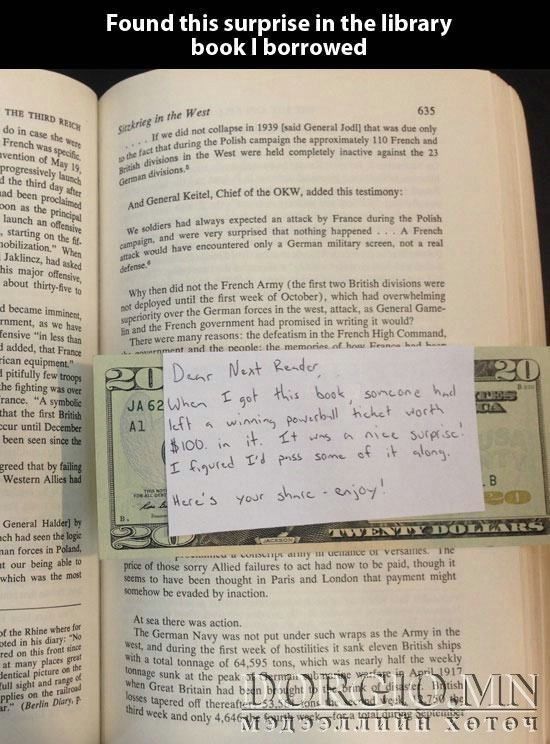 Found this surprise in the library
book I borrowed
THE THIRD REICH
do in case she were
French was specific,
vention of May 19,
progressively launch
d the third day after
had been proclaimed
oon as the principal
launch an offensive
, starting on the fif-
mobilization." When
Jaklincz, had asked
his major offensive,
about thirty-five to
d became imminent,
rnment, as we have
fensive "in less than
d added, that France
rican equipment."
d pitifully few troops
he fighting was over
rance. "A symbolic
that the first British
ccur until December
been seen since the
greed that by failing
Western Allies had
General Halder] by
ch had seen the logic
nan forces in Poland,
t our being able to
which was the most
of the Rhine where for
oted in his diary: "No
red on this front since
at many places great
dentical picture on the
full sight and range of
pplies on the railroad
ar." (Berlin Diary, p.
Sitzkrieg in the West 635
. . . . If we did not collapse in 1939 [said General Jodl] that was due only
to the fact that during the Polish campaign the approximately 110 French and
British divisions in the West were held completely inactive against the 23
German divisions.⁵
And General Keitel, Chief of the OKW, added this testimony:
We soldiers had always expected an attack by France during the Polish
campaign, and were very surprised that nothing happened . . . A French
attack would have encountered only a German military screen, not a real
defense.⁶
Why then did not the French Army (the first two British divisions were
not deployed until the first week of October), which had overwhelming
superiority over the German forces in the west, attack, as General Game-
lin and the French government had promised in writing it would?
There were many reasons: the defeatism in the French High Command,
government and the people; the memories of how France had been
20
20
JA 62
A1
Dear Next Reader,
When I got this book, someone had
left a winning powerball ticket worth
$100. in it. It was a nice surprise!
I figured I'd pass some of it along.
Here's your share - enjoy!
B
B.
20
20
JACKSON
TWENTY DOLLARS
conscript army in defiance of Versailles. The
price of those sorry Allied failures to act had now to be paid, though it
seems to have been thought in Paris and London that payment might
somehow be evaded by inaction.
At sea there was action.
The German Navy was not put under such wraps as the Army in the
west, and during the first week of hostilities it sank eleven British ships
with a total tonnage of 64,595 tons, which was nearly half the weekly
tonnage sunk at the peak April 1917
when Great Britain had been British
losses tapered off thereafter: 53,
third week and only 4,646 fourth week—for a total during September
DORGIO.MN
МЭДЭЭЛЛИЙН ХОТОЧ